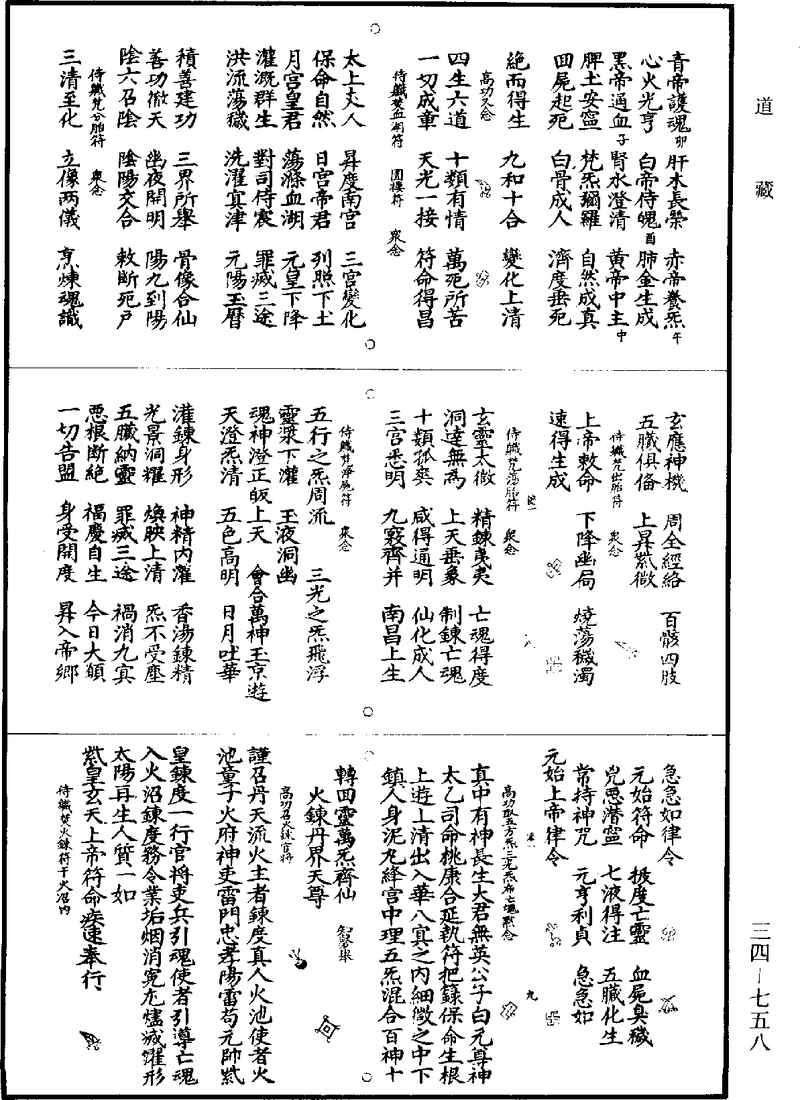 道藏
青帝護魂卯 肝木長榮 赤帝養炁午
心火光亨 白帝侍魄酉 肺金生成
黑帝通血子 腎水澄清 黃帝中主中
脾土安寧 梵炁彌羅 自然成真
回屍起死 白骨成人 濟度垂死
絕而得生 九和十合 變化上清
高功又念
四生六道 十類有情 萬死所苦
一切成童 天光一接 符命得昌
侍職焚血湖符 圓樓符 眾念
太上丈人 昇度南宮 三宮變化
保命自然 日宮帝君 列照下土
月宮皇君 蕩滌血湖 元皇下降
灌溉群生 對司侍宸 罪滅三途
洪流蕩穢 洗濯冥津 元陽玉曆
積善建功 三界所舉 骨像合仙
善功徹天 幽夜開明 陽九到陽
陰六召陰 陰陽交合 敕斷死戶
侍職焚分胎符 眾念
三清至化 立像兩儀 烹煉魂識
玄應神機 周全經絡 百骸四肢
五臟俱俻 上昇紫微
侍職焚出胎符 眾念
上帝敕命 下降幽局 燒蕩穢濁
速得生成
侍職焚蕩胎符 眾念
玄靈太微 精鍊夷夷 亡魂得度
洞達無為 上天垂象 制鍊亡魂
十類孤爽 咸得通明 仙化成人
三宮悉明 九竅齊并 南昌上生
侍職焚淨屍符 眾念
五行之炁周流 三光之炁飛浮
靈漿下灌 玉液洞幽
魂神澄正皈上天 會合萬神玉京遊
天澄炁清 五色高明 日月吐華
灌鍊身形 神精內灌 香湯鍊精
光景洞耀 煥映上清 炁不受塵
五臟納靈 罪滅三途 禍消九冥
惡根斷絕 福慶自生 今日大願
一切告盟 身受開度 昇入帝鄉
急急如律令
元始符命 披度亡靈 血屍臭穢
兇惡潛寧 七液得注 五臟化生
常持神咒 元亨利貞 急急如
元始上帝律令
九
真中有神長生大君無英公子白元尊神
太乙司命桃康合延執符把籙保命生根
上遊上清出入華八冥之內細微之中下
鎮人身泥丸絳宮中理五炁混合百神十
轉回靈萬炁齊仙 知磬舉
火鍊丹界天尊
高功召火鍊官將
謹召丹天流火主者鍊度真人火池使者火
池童子火府神吏雷門忠孝陽雷苟元帥紫
皇鍊度一行官將吏兵引魂使者引導亡魂
入火沼鍊度務令業垢烟消冤尤燼滅濯形
太陽再生人質一如
紫皇玄天上帝符命疾速奉行
侍職焚火鍊符于火沼內
三四—七五八